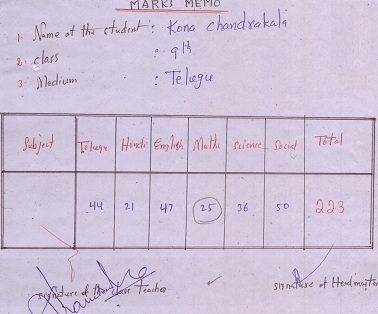 MARKS MEMO
1. Name of the student : Kona chandrakala
2. class : 9th
3. Medium : Telugu
Subject Telugu Hindi English Maths Science Social Total
44 21 47 25 36 50 223
signature of the class Teacher signature of Headmaster